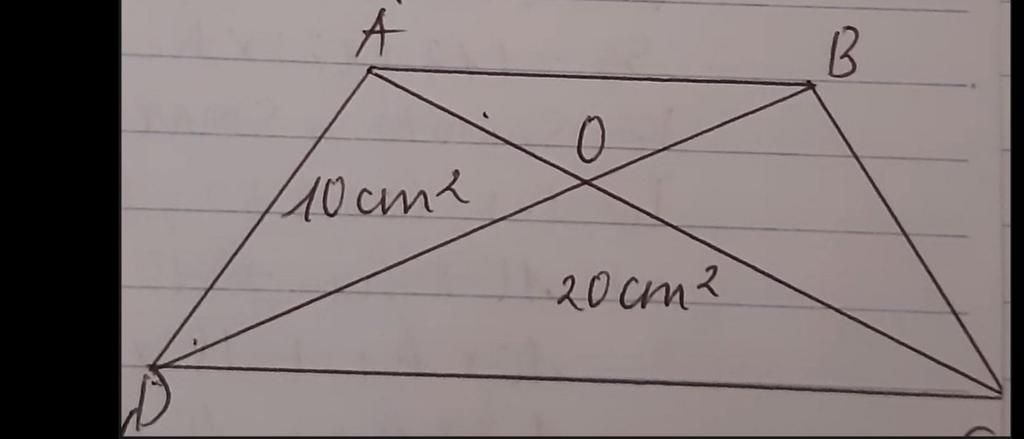 A
B
O
10cm²
20cm²
D